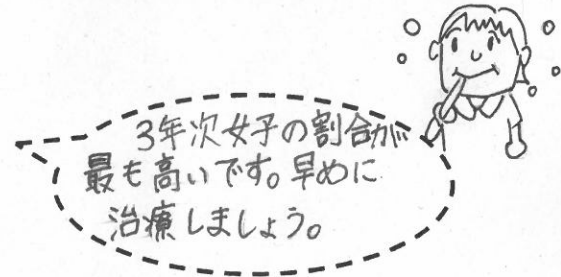 3年次女子の割合が
最も高いです。早めに
治療しましょう。